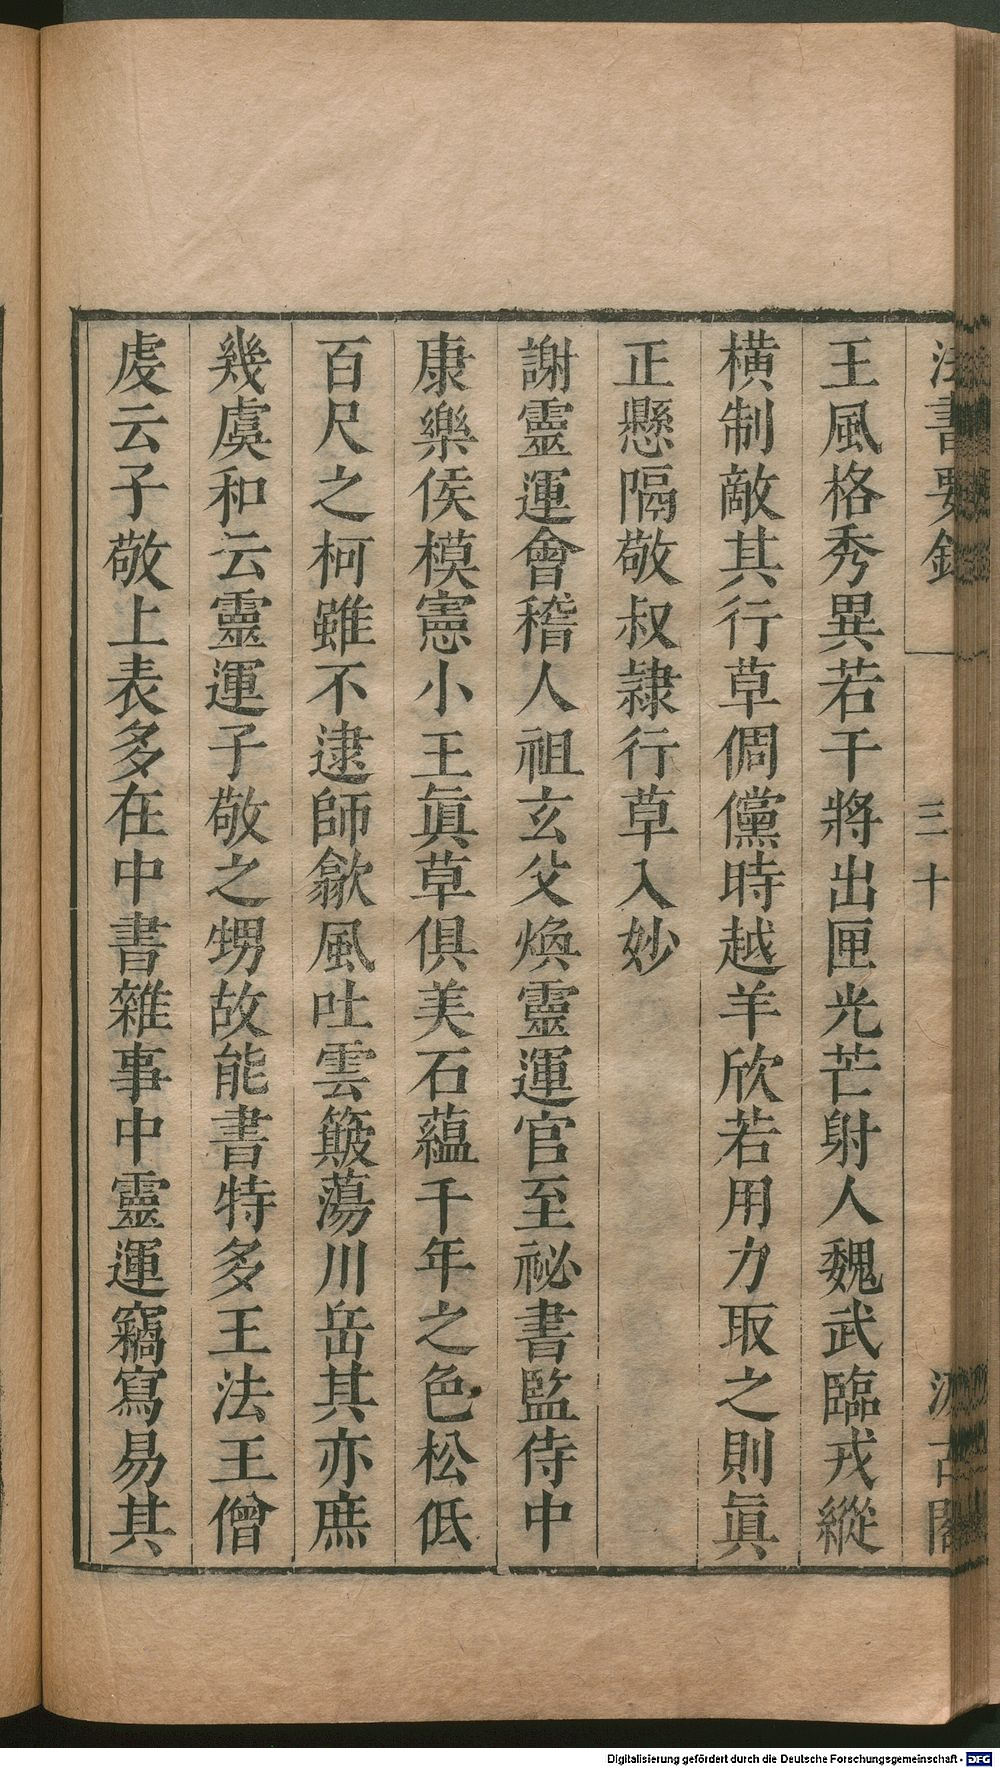 法書要錄 三十 汲古閣
王風格秀異若干將出匣光芒射人魏武臨戎縱
橫制敵其行草倜儻時越羊欣若用力取之則眞
正懸隔敬叔隷行草入妙
謝靈運會稽人祖玄父煥靈運官至祕書監侍中
康樂侯模憲小王眞草俱美石蘊千年之色松低
百尺之柯雖不逮師歙風吐雲簸蕩川岳其亦庶
幾虞和云靈運子敬之甥故能書特多王法王僧
虔云子敬上表多在中書雜事中靈運竊寫易其
Digitalisierung gefördert durch die Deutsche Forschungsgemeinschaft - DFG